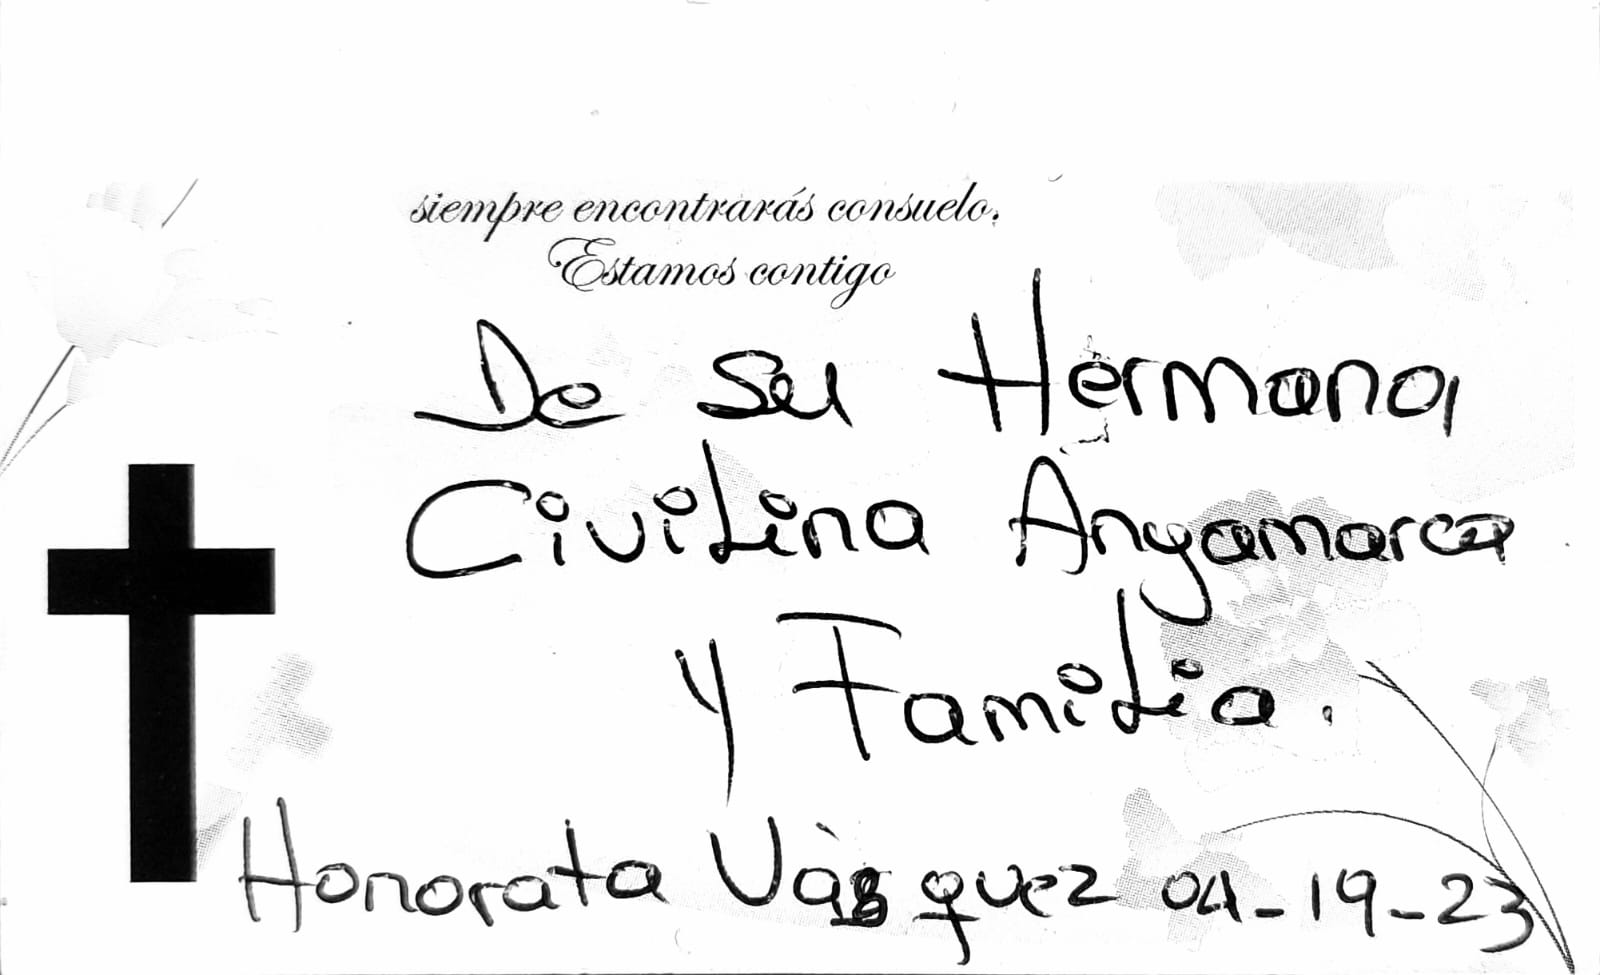 siempre encontrarás consuelo.
Estamos contigo
De su Hermana
Civilina Angamarca
y Familia.
Honorata Vàsquez 04-19-23